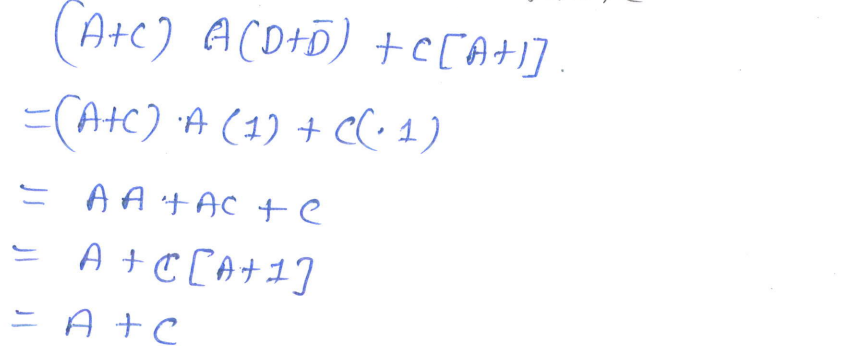 (A+C) A(D+D̄) + C[A+1].
=(A+C)·A(1) + C(·1)
= AA + AC + C
= A + C[A+1]
= A + C